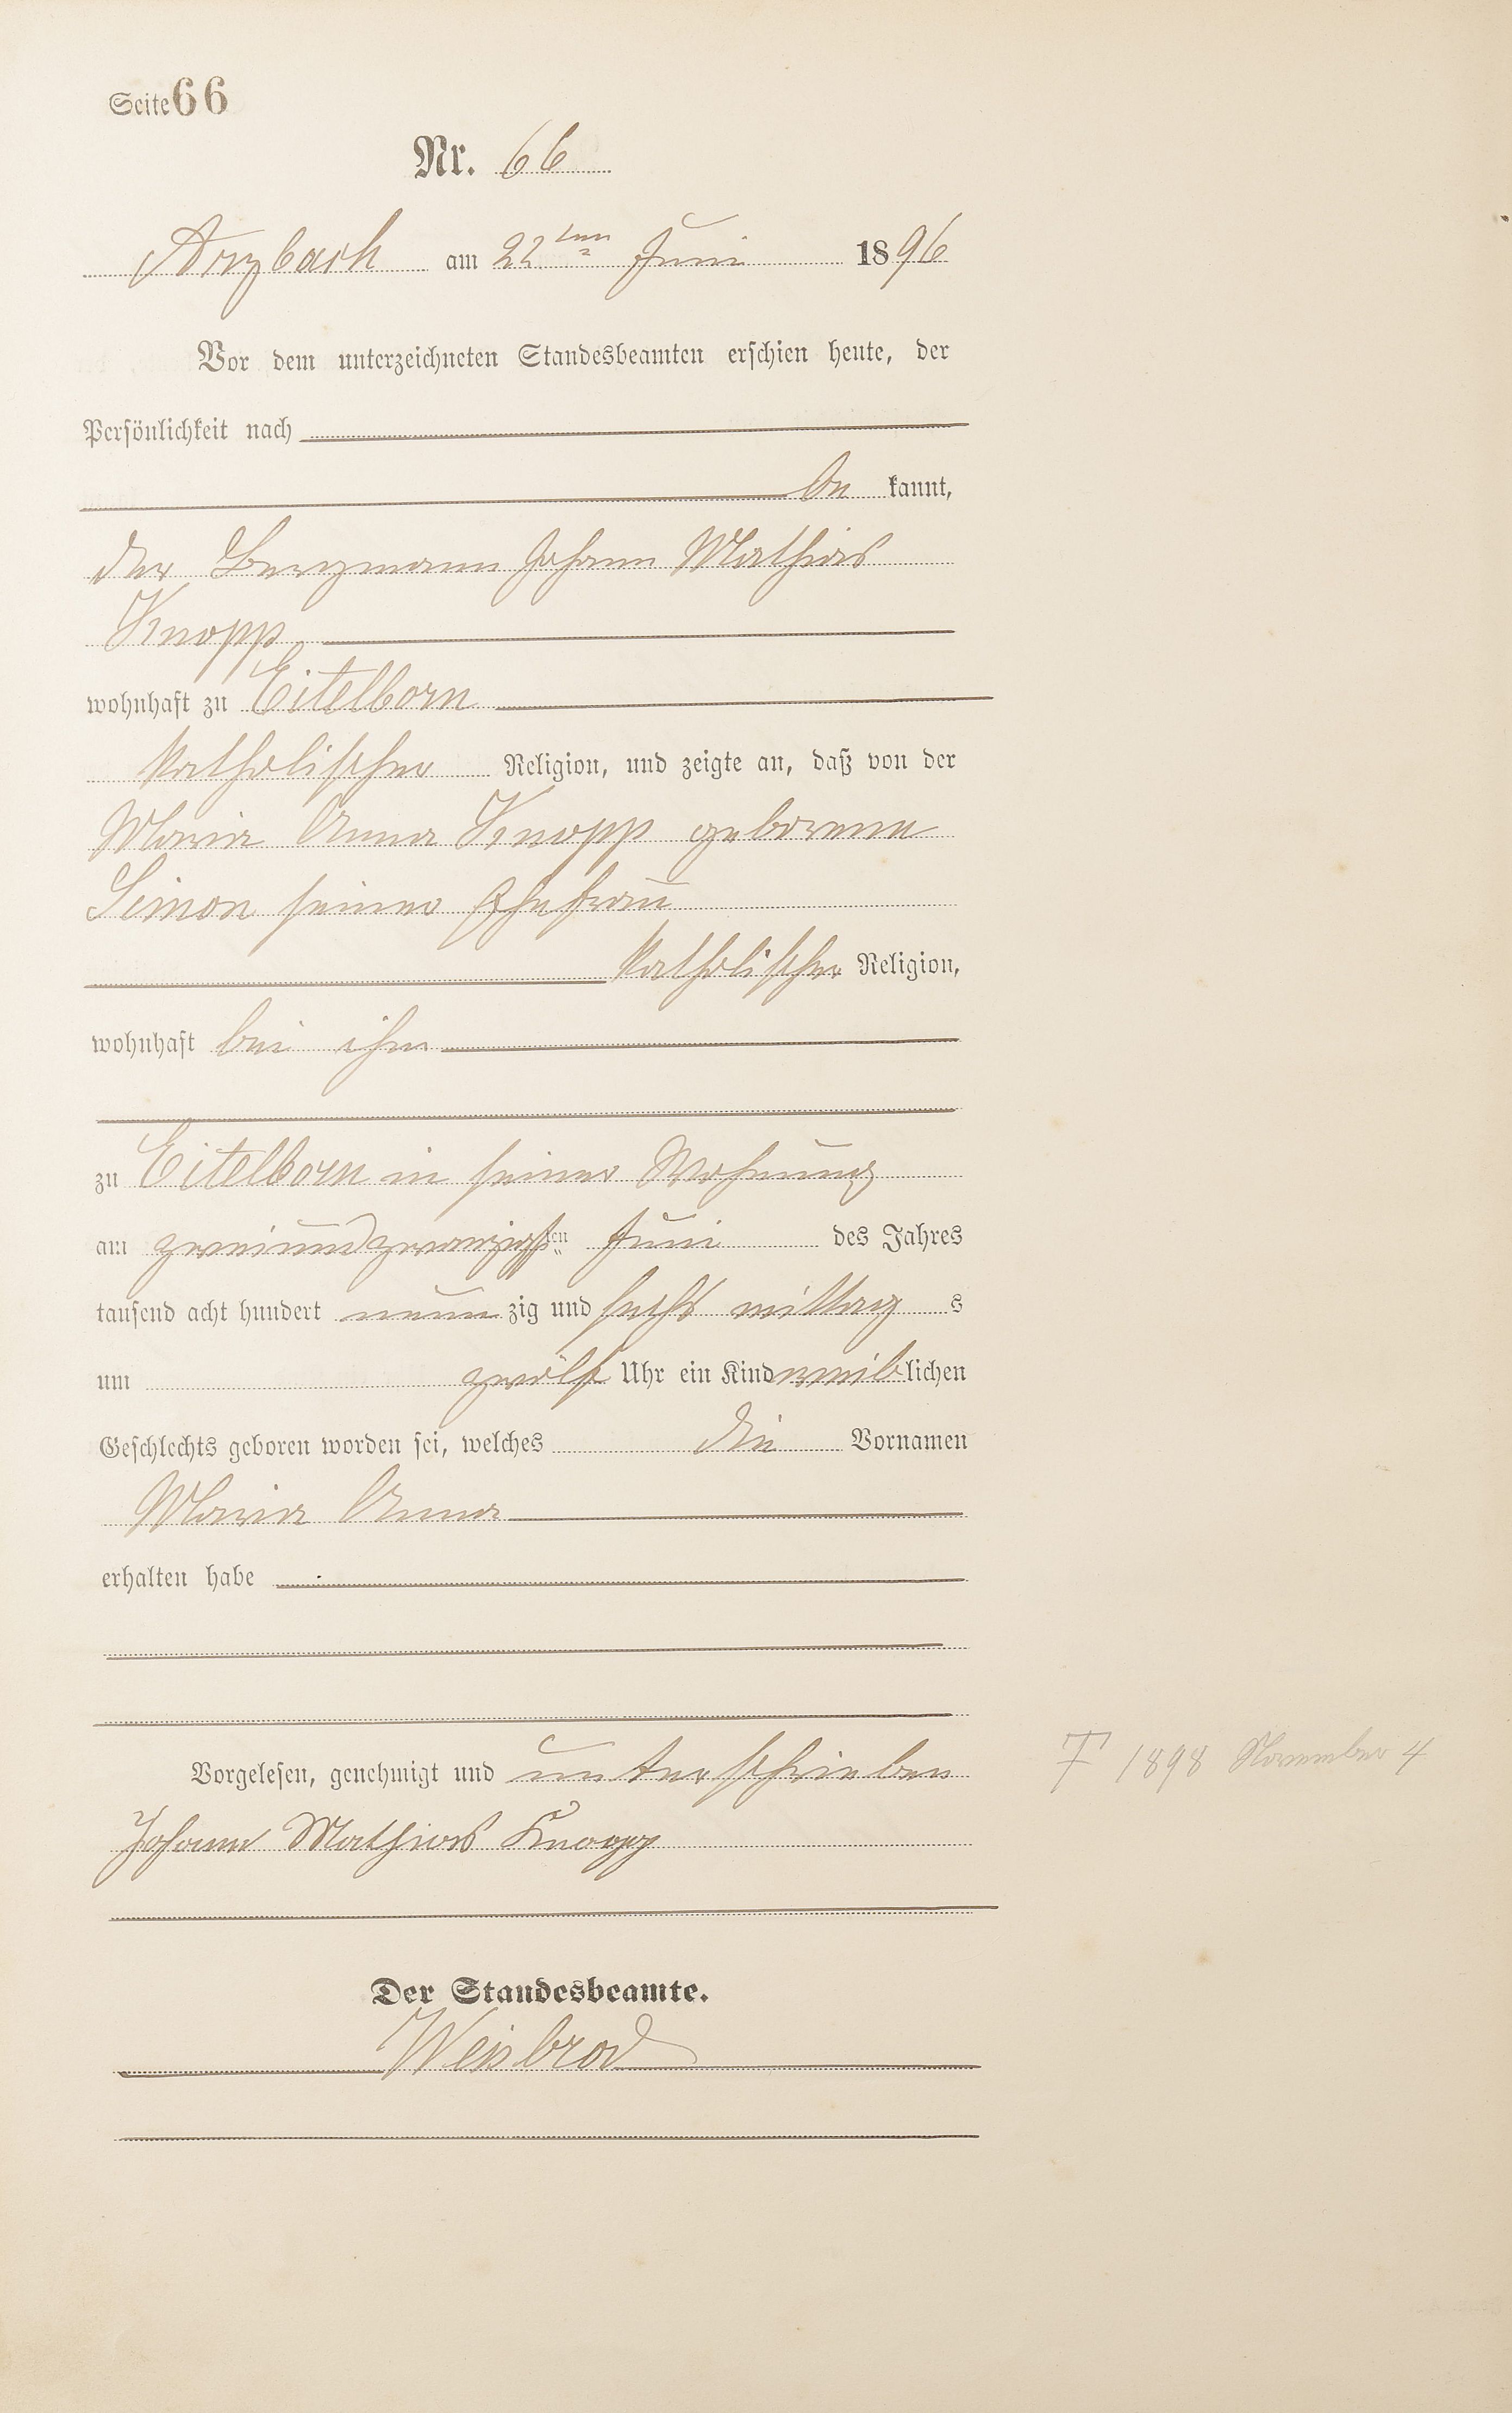 Seite 66
Nr. 66
Arzbach am 22ten Juni 1896
Vor dem unterzeichneten Standesbeamten erschien heute, der
Persönlichkeit nach
be kannt,
der Bergmann Johann Mathias
Knopp
wohnhaft zu Eitelborn
katholischer Religion, und zeigte an, daß von der
Maria Anna Knopp geborene
Simon seiner Ehefrau
katholischer Religion,
wohnhaft bei ihm
zu Eitelborn in seiner Wohnung
am zweiundzwanzigsten Juni des Jahres
tausend acht hundert neun zig und sechs mittag s
um zwölf Uhr ein Kind weiblichen
Geschlechts geboren worden sei, welches die Vornamen
Maria Anna
erhalten habe
Vorgelesen, genehmigt und unterschrieben
† 1898 November 4
Johann Mathias Knopp
Der Standesbeamte.
Weisbrod